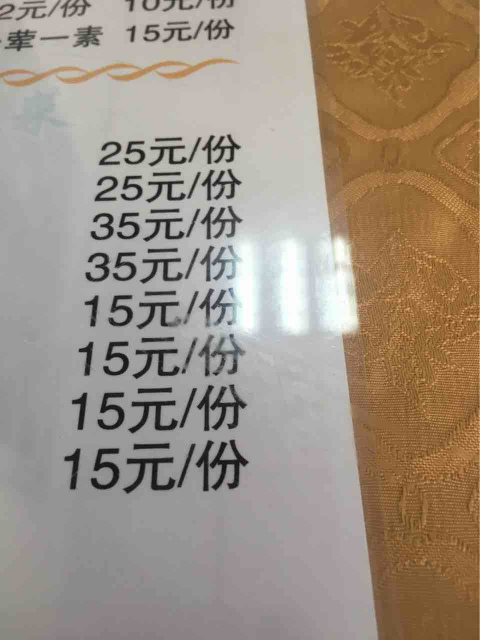 2元/份 10元/份
荤一素 15元/份
菜
25元/份
25元/份
35元/份
35元/份
15元/份
15元/份
15元/份
15元/份